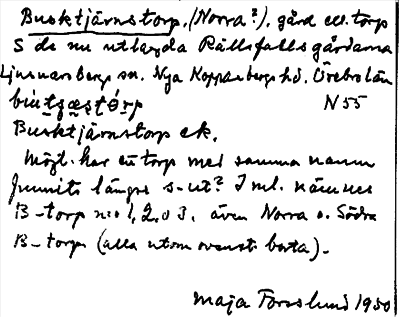 Busktjärnstorp, (Norra?), gård ell. torp
S de nu utlagda Rällsfallsgårdarna
Ljusnarsbergs sn. Nya Kopparbergs hd. Örebro län
N 55
Busktjärnstorp ek.
Möjl. har ett torp med samma namn
funnits längre s-ut? I ml. nämnes
B-torp no 1, 2, o 3, även Norra o. Södra
B-torp (alla utom ovanst. borta).
Maja Forslund 1950